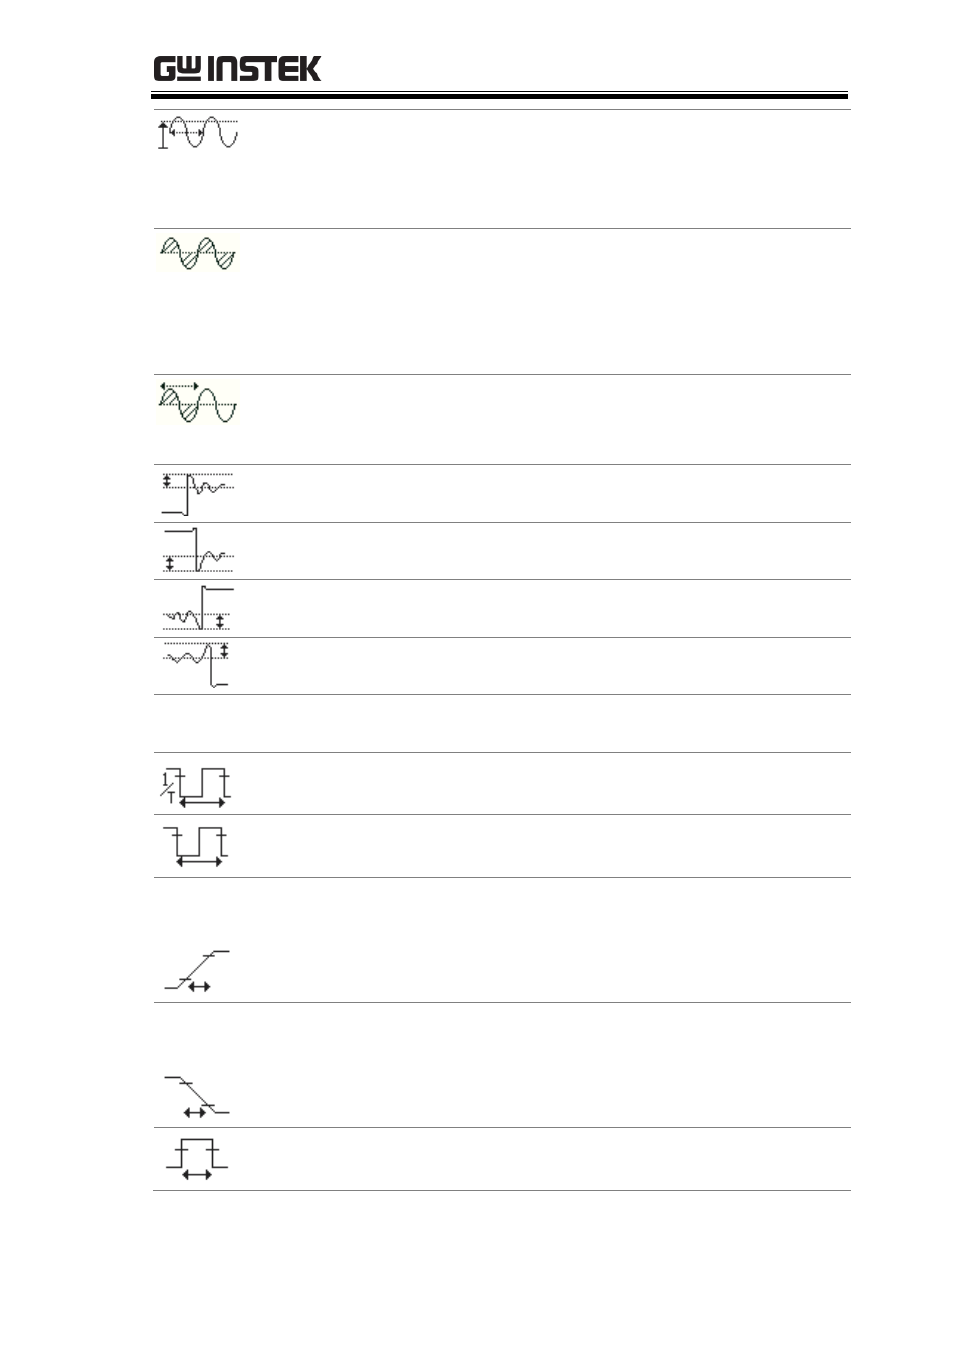 GW INSTEK
1/T